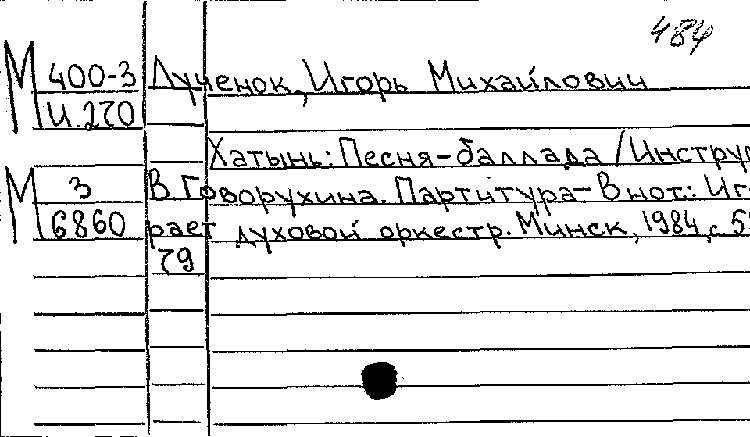 484
М 400-3 Лученок, Игорь Михайлович
И.270
Хатынь: Песня-баллада / Инстру
М 3 В. Говорухина. Партитура - В нот.: Иг
6860 рает духовой оркестр. Минск, 1984, с. 5
79